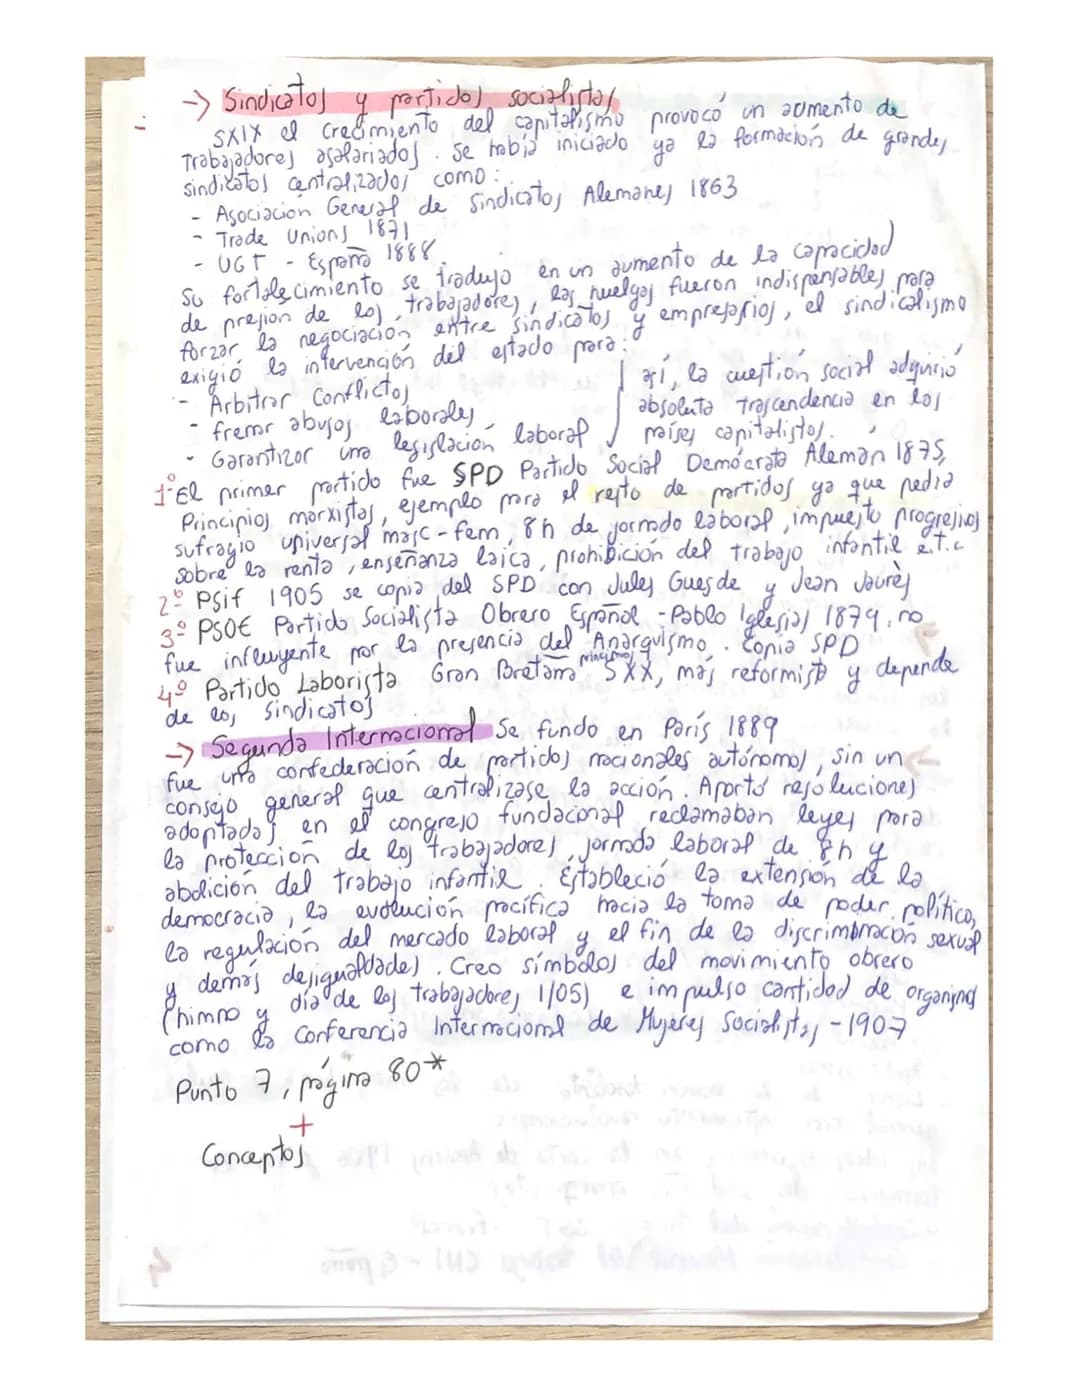 -> Sindicatos y partidos socialistas
SXIX el crecimiento del capitalismo provocó un aumento de
Trabajadores asalariados. Se había iniciado ya la formación de grandes
sindicatos centralizados como:
- Asociación General de Sindicatos Alemanes 1863
- Trade Unions 1871
- UGT - España 1888
Su fortalecimiento se tradujo en un aumento de la capacidad
de presion de los trabajadores, las huelgas fueron indispensables para
forzar la negociación entre sindicatos y empresarios, el sindicalismo
exigió la intervención del estado para:
- Arbitrar Conflictos
- frenar abusos laborales
- Garantizar una legislación laboral
así, la cuestión social adquirió
absoluta Trascendencia en los
países capitalistas.
1º El primer partido fue SPD Partido Social Demócrata Aleman 1875,
Principios marxistas, ejemplo para el resto de partidos ya que pedía
sufragio universal masc-fem, 8h de jornada laboral, impuesto progresivo
sobre la renta, enseñanza laica, prohibición del trabajo infantil e.t.c
2º PSif 1905 se copia del SPD con Jules Guesde y Jean Jaurès
3º PSOE Partido Socialista Obrero Español - Pablo Iglesias 1879, no
fue influyente por la presencia del Anarquismo. Copia SPD
4º Partido Laborista Gran Bretaña principios SXX, más reformista y depende
de los sindicatos
-> Segunda Internacional Se fundo en París 1889
fue una confederación de partidos nacionales autónomos, sin un
consejo general que centralizase la acción. Aportó resoluciones
adoptadas en el congreso fundacional reclamaban leyes para
la protección de los trabajadores, jornada laboral de 8h y
abolición del trabajo infantil. Estableció la extensión de la
democracia, la evolución pacífica hacia la toma de poder político,
la regulación del mercado laboral y el fin de la discriminación sexual
y demás desigualdades. Creo símbolos del movimiento obrero
(himno y día de los trabajadores 1/05) e impulso cantidad de organismos
como la Conferencia Internacional de Mujeres Socialistas - 1907
Punto 7, página 80*
+
Conceptos